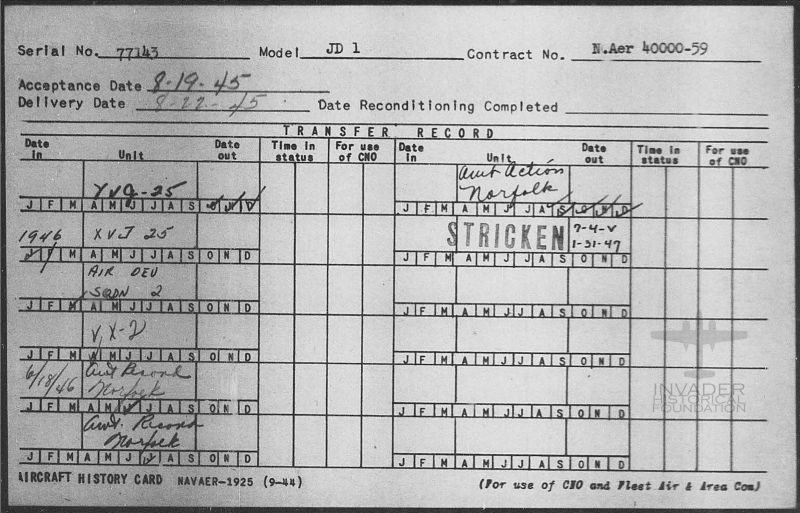 Serial No. 77143 Model JD 1 Contract No. N.Aer 40000-59
Acceptance Date 8-19-45
Delivery Date 8-22-45 Date Reconditioning Completed
TRANSFER RECORD
Date in Unit Date out Time in status For use of CNO Date in Unit Date out Time in status For use of CNO
XVJ-25
J F M A M J J A S O N D
1946 XVJ 25
J F M A M J J A S O N D
AIR DEV
SQDN 2
J F M A M J J A S O N D
V X-2
J F M A M J J A S O N D
6/18/46
Norfolk
J F M A M J J A S O N D
Norfolk
J F M A M J J A S O N D
Awt Action
Norfolk
J F M A M J J A S O N D
STRICKEN 7-4-V
1-31-47
J F M A M J J A S O N D
J F M A M J J A S O N D
J F M A M J J A S O N D
J F M A M J J A S O N D
J F M A M J J A S O N D
INVADER
HISTORICAL
FOUNDATION
AIRCRAFT HISTORY CARD NAVAER-1925 (9-44) (For use of CNO and Fleet Air & Area Com)